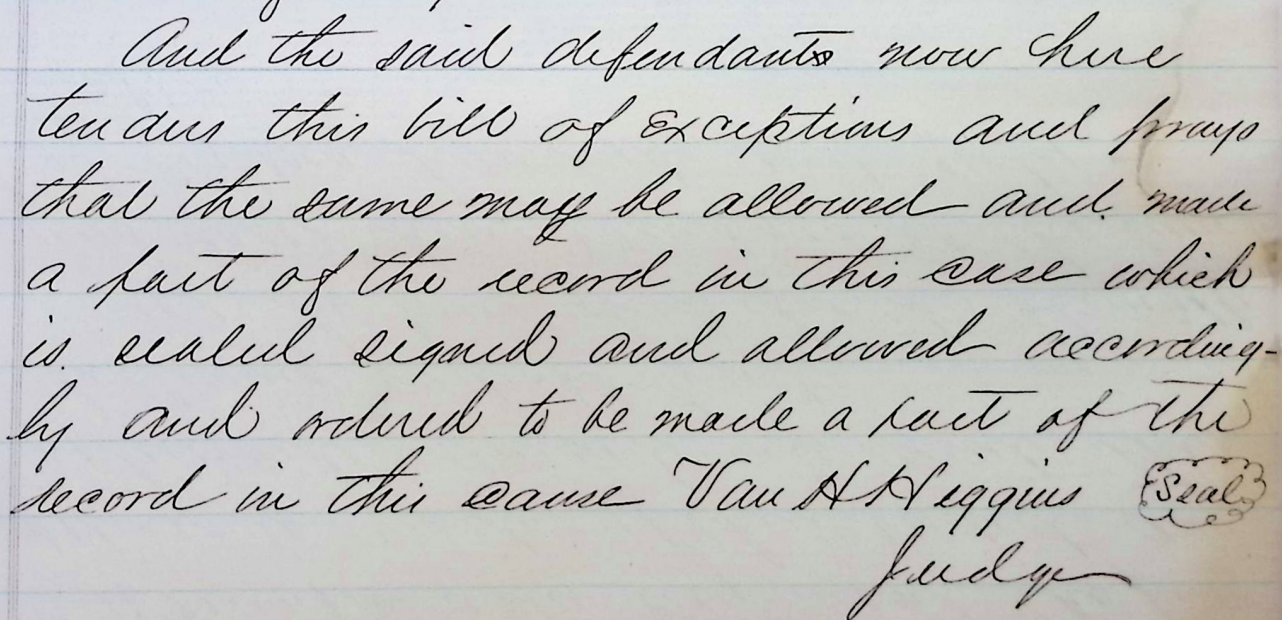 And the said defendants now here
tenders this bill of Exceptions and prays
that the same may be allowed and made
a part of the record in this case which
is sealed signed and allowed according-
ly and ordered to be made a part of the
record in this cause Van H Higgins Seal
Judge